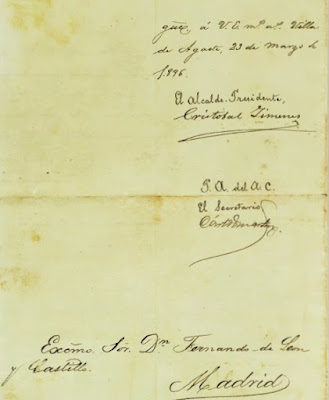 gũez, á V. E. mˢ aˢ. Villa
de Agaete, 23 de Marzo de
1,896.
El Alcalde-Presidente,
Cristobal Jimenez
P. A. del A. C.
El Secretario
Excm̃o Sõr. Dⁿ Fernando de Leon
y Castillo.
Madrid